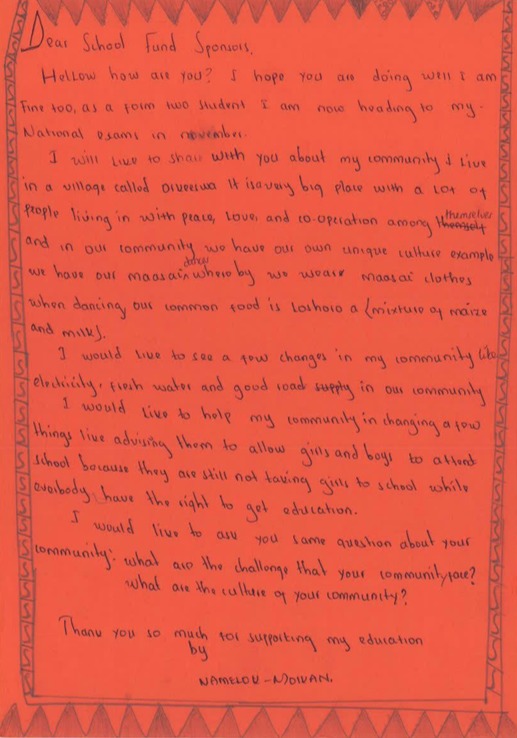 Dear School Fund Sponsors,
Hellow how are you? I hope you are doing well I am
Fine too, as a form two student I am now heading to my
National exams in november.
I will like to share with you about my community I live
in a village called It is a very big place with a lot of
people living in with peace, Love, and co-operation among themself themselves
and in our community we have our own unique culture example
we have our maasai whereby we weare maasai clothes
when dancing, our common food is Loshoro a (mixture of maize
and milk).
I would like to see a few changes in my community like
electricity, fresh water and good road supply in our community
I would like to help my community in changing a few
things like advising them to allow girls and boys to attend
school because they are still not taking girls to school while
everbody have the right to get education.
I would like to ask you some question about your
community: what are the challenge that your community face?
what are the culture of your community?
Thank you so much for supporting my education
by
NAMELOK - NDIKAN.